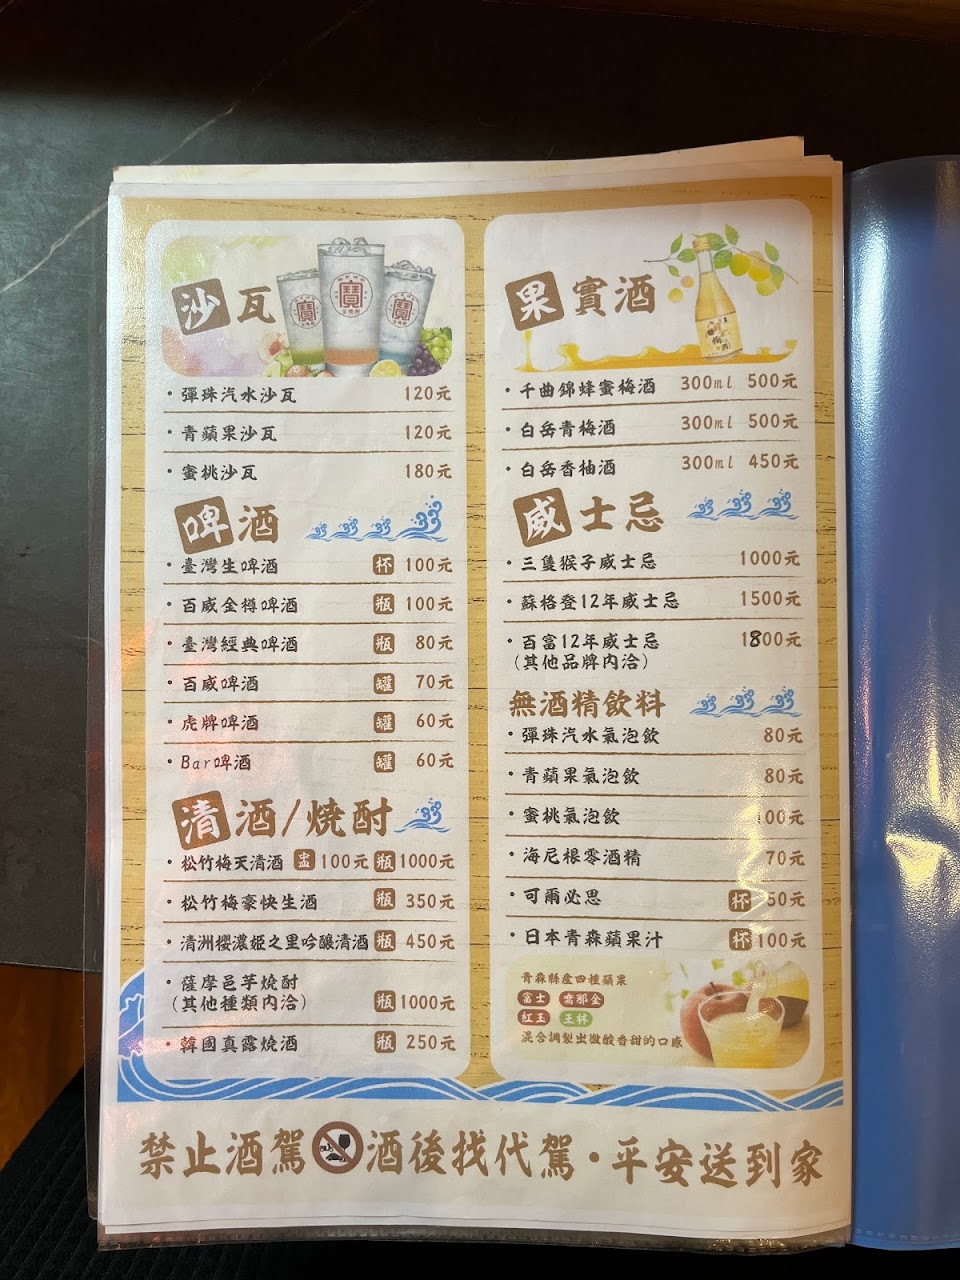 沙瓦
寶
寶
寶
・彈珠汽水沙瓦 120元
・青蘋果沙瓦 120元
・蜜桃沙瓦 180元
啤酒
・臺灣生啤酒 杯 100元
・百威金樽啤酒 瓶 100元
・臺灣經典啤酒 瓶 80元
・百威啤酒 罐 70元
・虎牌啤酒 罐 60元
・Bar啤酒 罐 60元
清酒/燒酎
・松竹梅天清酒 盅 100元 瓶 1000元
・松竹梅豪快生酒 瓶 350元
・清洲櫻濃姬之里吟釀清酒 瓶 450元
・薩摩邑芋燒酎
(其他種類內洽) 瓶 1000元
・韓國真露燒酒 瓶 250元
果實酒
・千曲錦蜂蜜梅酒 300ml 500元
・白岳青梅酒 300ml 500元
・白岳香柚酒 300ml 450元
威士忌
・三隻猴子威士忌 1000元
・蘇格登12年威士忌 1500元
・百富12年威士忌 1800元
(其他品牌內洽)
無酒精飲料
・彈珠汽水氣泡飲 80元
・青蘋果氣泡飲 80元
・蜜桃氣泡飲 00元
・海尼根零酒精 70元
・可爾必思 杯 50元
・日本青森蘋果汁 杯 100元
青森縣產四種蘋果
富士 喬那金
紅玉 王林
混合調製出微酸香甜的口感
禁止酒駕 酒後找代駕・平安送到家